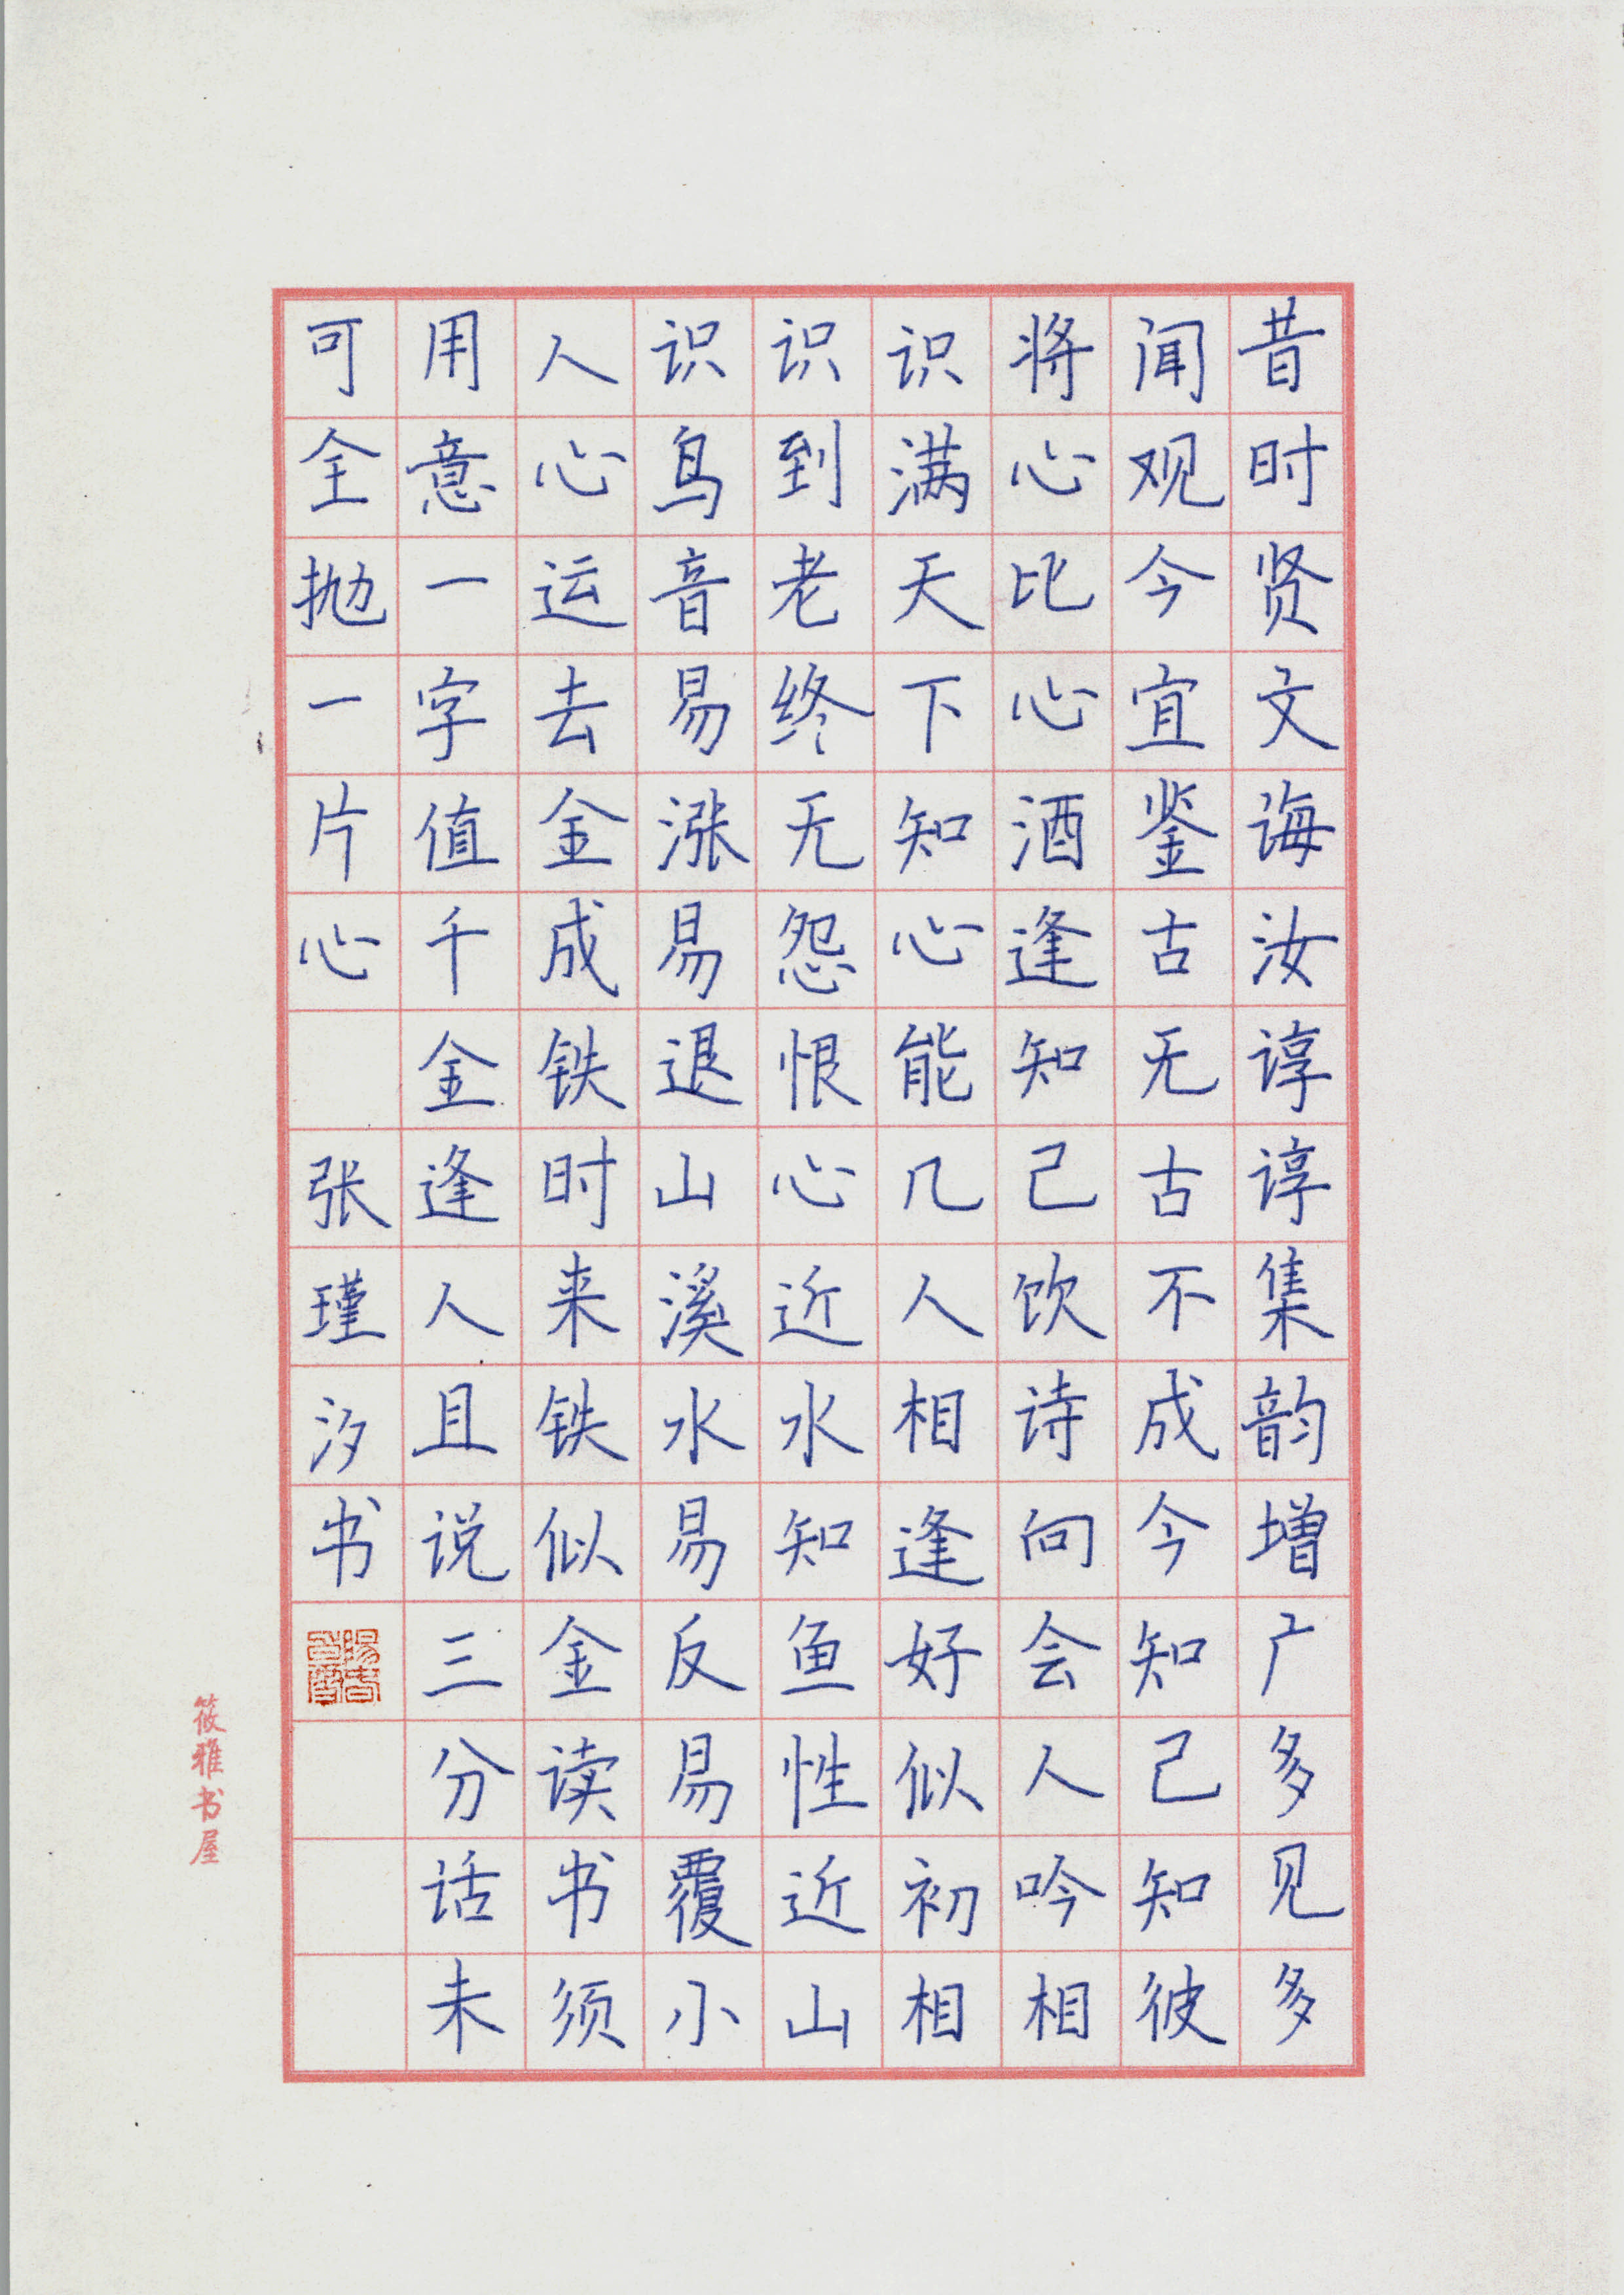 昔时贤文诲汝谆谆集韵增广多见多
闻观今宜鉴古无古不成今知己知彼
将心比心酒逢知己饮诗向会人吟相
识满天下知心能几人相逢好似初相
识到老终无怨恨心近水知鱼性近山
识鸟音易涨易退山溪水易反易覆小
人心运去金成铁时来铁似金读书须
用意一字值千金逢人且说三分话未
可全抛一片心 张瑾汐书
筱雅书屋